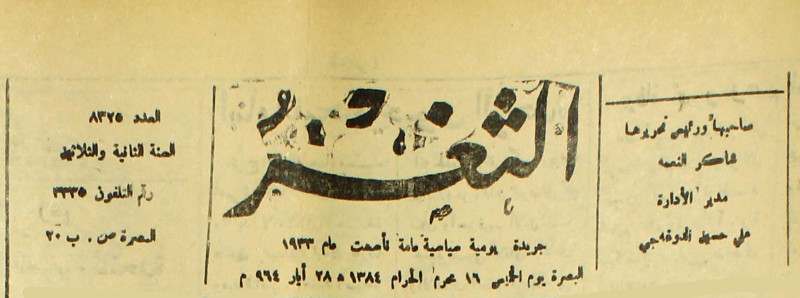 صاحبها ورئيس تحريرها
شاكر النعمه
مدير الادارة
علي حسين الدوغه جي
الثغر
جريدة يومية سياسية عامة تأسست عام ١٩٣٣
البصرة يوم الخميس ١٦ محرم الحرام ١٣٨٤ ه ٢٨ أيار ٩٦٤ م
العدد ٨٣٢٥
السنة الثانية والثلاثون
رقم التلفون ٣٣٣٥
البصرة ص . ب ٢٠